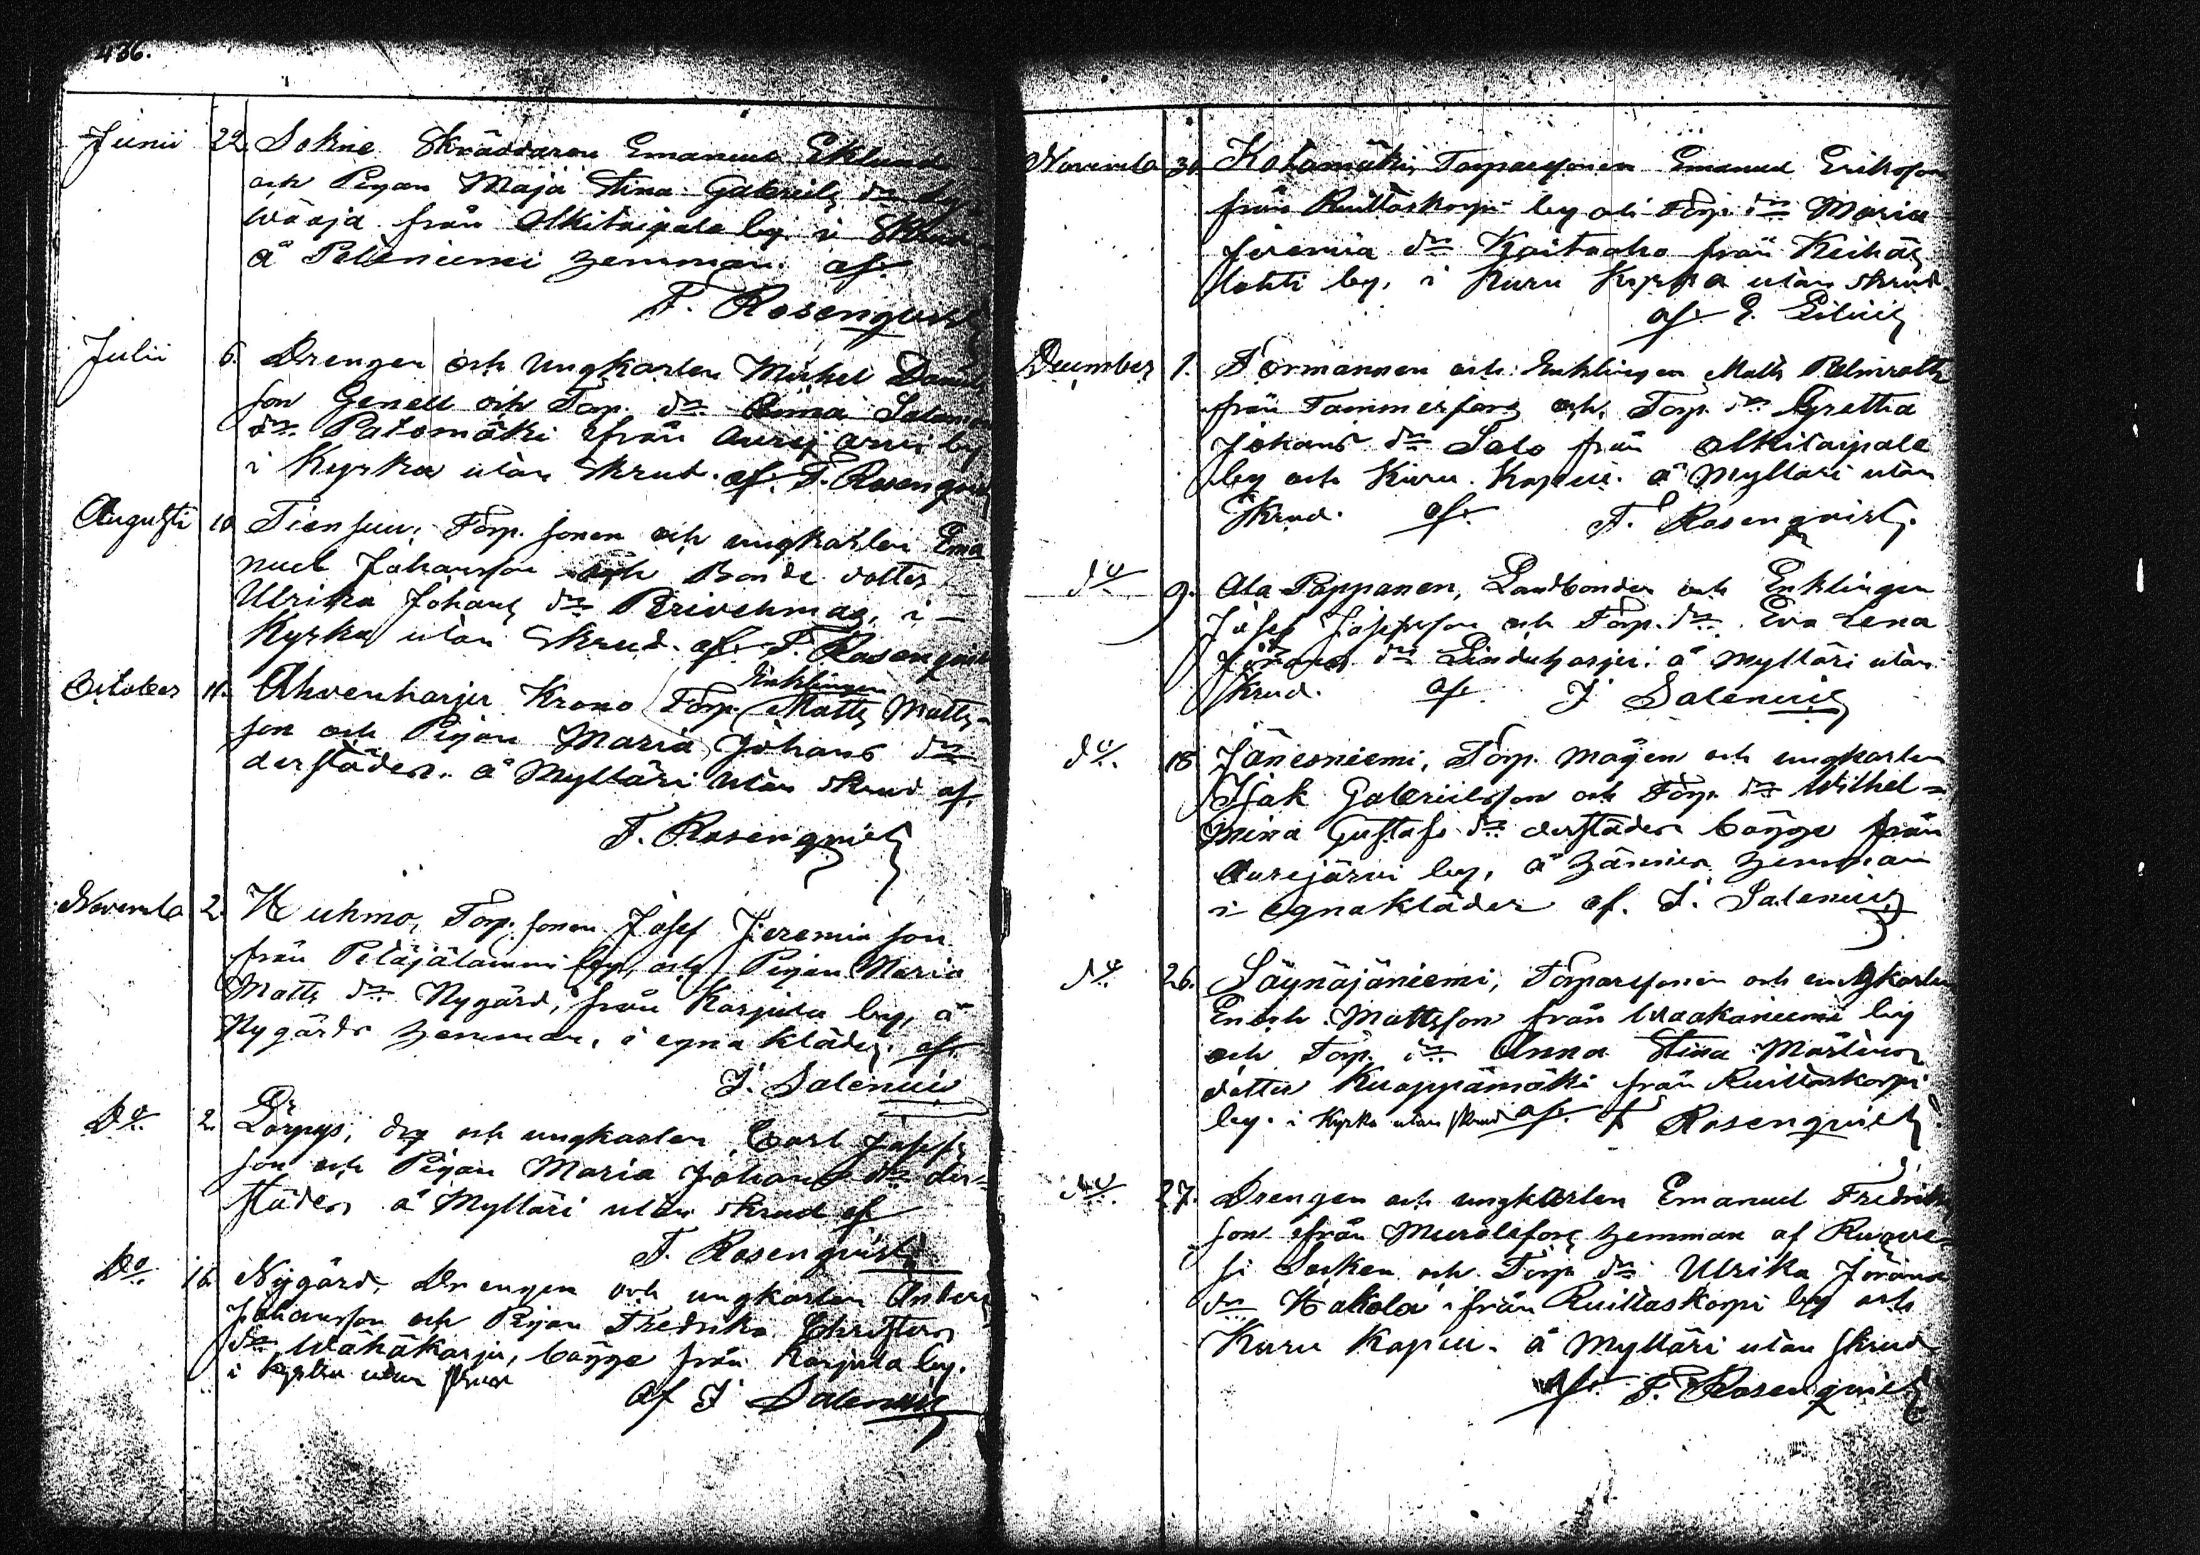 436.
Junii 22. Sokne Skräddaren Emanuel Eklund
och Pigan Maja Stina Gabriels dr
från Olkitaipale by i Skrud
å Peleniemi hemman. af.
F. Rosenqvist
Julii 6. Drengen och Ungkarlen Michel Daniels
son Genell och Torp. dr. Anna Salomons
dr. Palomäki från Aurejärvi by
i Kyrka utan Skrud. af. F. Rosenqvist
Augusti 10 Tiensuu, Torp. sonen och ungkarlen Ema
nuel Johansson och Bonde dotter
Ulrika Johans dr i
Kyrka utan Skrud. af F. Rosenqvist
October 11. Ahvenharju Krono Torp. Enklingen Matts Matts-
son och Pigan Maria Johans dr
derstädes. å Mylläri utan skrud af.
F. Rosenqvist
Novemb 2. Huhmo, Torp. sonen Josef Jeremia son
från Petäjälammi by, och Pigan Maria
Matts dr Nygård, från Karjula by, å
Nygårds hemman, i egna kläder. af.
J. Salenius
Do. 2. Lörpys, drg och ungkarlen Carl Josefs
son och Pigan Maria Johans dr der-
städes å Mylläri utan skrud af
F. Rosenqvist
Do. 16. Nygård, Drengen och ungkarlen Anders
Johansson och Pigan Fredrika Christers
dr Wähäkarju, bägge från Karjula by.
i Kyrka utan skrud
af J Salenius
Novemb 30. Kotamäki, Torparesonen Emanuel Eriksson
från Ruittaskorpi by och Torp. dr Maria
Jeremia dr Kaitaaho från Keihäs
lahti by, i Kuru Kyrka utan skrud
af. E.
December 1. Formannen och Enklingen Matts Palmroth
från Tammerfors och Torp. dr Gretha
Johans dr Salo från Olkitaipale
by och Kuru Kapell. å Myllari utan
Skrud. af. F. Rosenqvist.
do 9. Ala Poppanen, Landbonden och Enklingen
Josef Josefsson och Torp. dr. Eva Lena
Jörans dr Linduharju. å Mylläri utan
skrud. af. J Salenius
do. 18. Jäneoniemi, Torp. mågen och ungkarlen
Isak Gabrielsson och Torp. dr Wilhel=
mina Gustafs dr derstädes bägge från
Aurejärvi by, å Hännien hemman
i egnakläder af. J. Salenius
do. 26. Säynäjäniemi, Torparesonen och ungkarlen
Enoch Mattsson från Waakaniemi by
och Torp. dr. Anna Stina Mårtens
dotter Kuappämäki från Ruittaskorpi
by. i Kyrka utan skrud af. F Rosenqvist
do. 27. Drengen och ungkarlen Emanuel Fredriks
son från Murolefors hemman af Ruove-
si Socken och Torp dr Ulrika Jörans
dr Hakola från Ruittaskorpi by och
Kuru Kapell. å Mylläri utan skrud
af. F. Rosenqvist